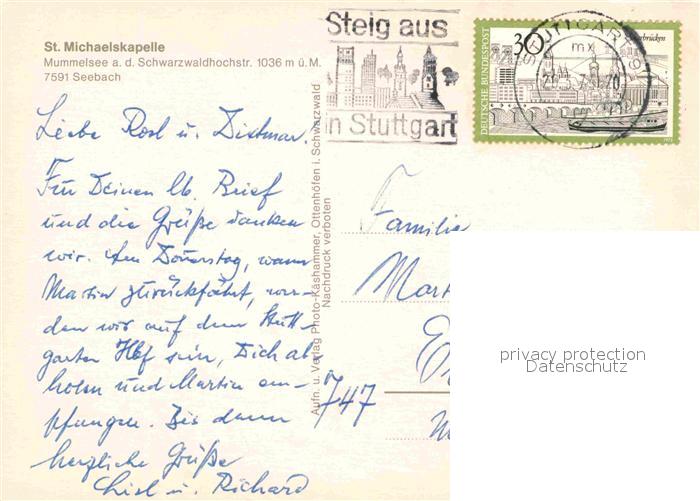 St. Michaelskapelle
Mummelsee a. d. Schwarzwaldhochstr. 1036 m ü. M.
7591 Seebach
Liebe Rosl u. Dietmar.
Für Deinen lb. Brief
und die Grüße danken
wir. Am Donerstag, wann
Martin zurückfährt, wer-
den wir auf dem Stutt-
garter Hbf sein, Dich ab-
holen und Martin em-
pfangen. Bis dann
herzliche Grüße
Liesl u. Richard
Aufn. u. Verlag Photo-Käshammer, Ottenhöfen i. Schwarzwald
Nachdruck verboten
Steig aus
in Stuttgart
30
DEUTSCHE BUNDESPOST
Saarbrücken
STUTTGART
mx
Familie
Mart
747
privacy protection
Datenschutz